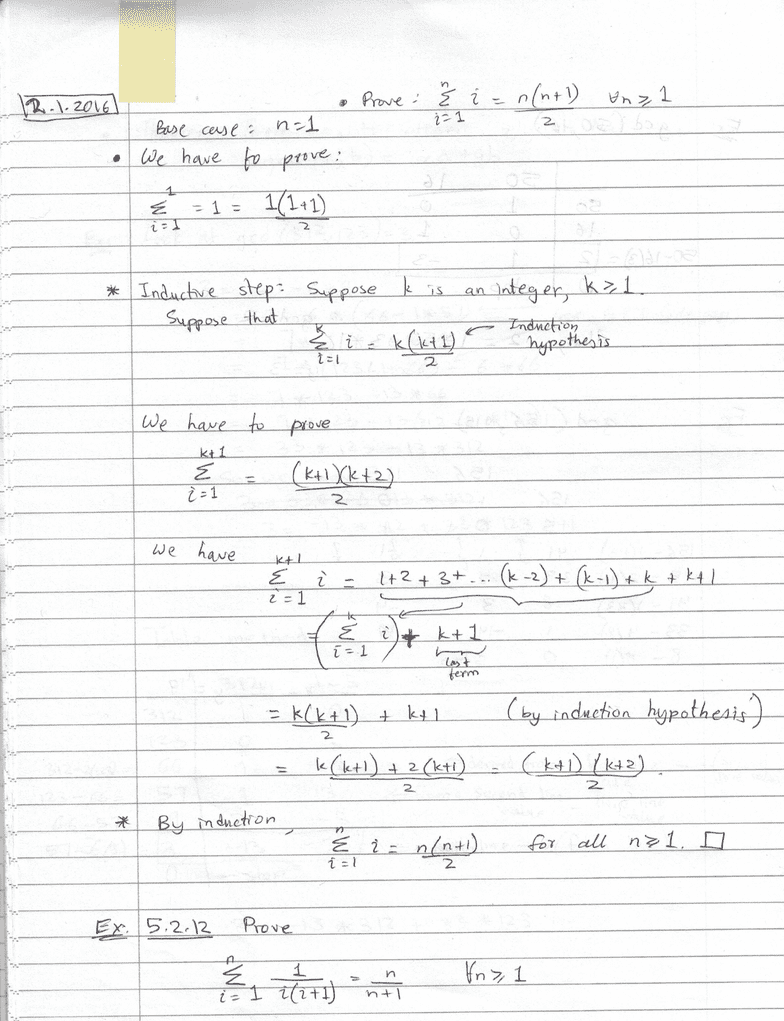 12.1.2016
• Prove: \sum_{i=1}^{n} i = n(n+1)/2 ∀n ≥ 1
Base case: n=1
• We have to prove:
\sum_{i=1}^{1} = 1 = 1(1+1)/2
* Inductive step: Suppose k is an integer, k ≥ 1.
Suppose that
\sum_{i=1}^{k} i = k(k+1)/2 ← Induction hypothesis
We have to prove
\sum_{i=1}^{k+1} = (k+1)(k+2)/2
We have
\sum_{i=1}^{k+1} i = 1+2+3+... (k-2) + (k-1) + k + k+1
= (\sum_{i=1}^{k} i) + k+1
last term
= k(k+1)/2 + k+1 (by induction hypothesis)
= k(k+1) + 2(k+1)/2 = (k+1)(k+2)/2.
* By induction, \sum_{i=1}^{n} i = n(n+1)/2 for all n ≥ 1. □
Ex. 5.2.12 Prove
\sum_{i=1}^{n} 1/i(i+1) = n/n+1 ∀n ≥ 1